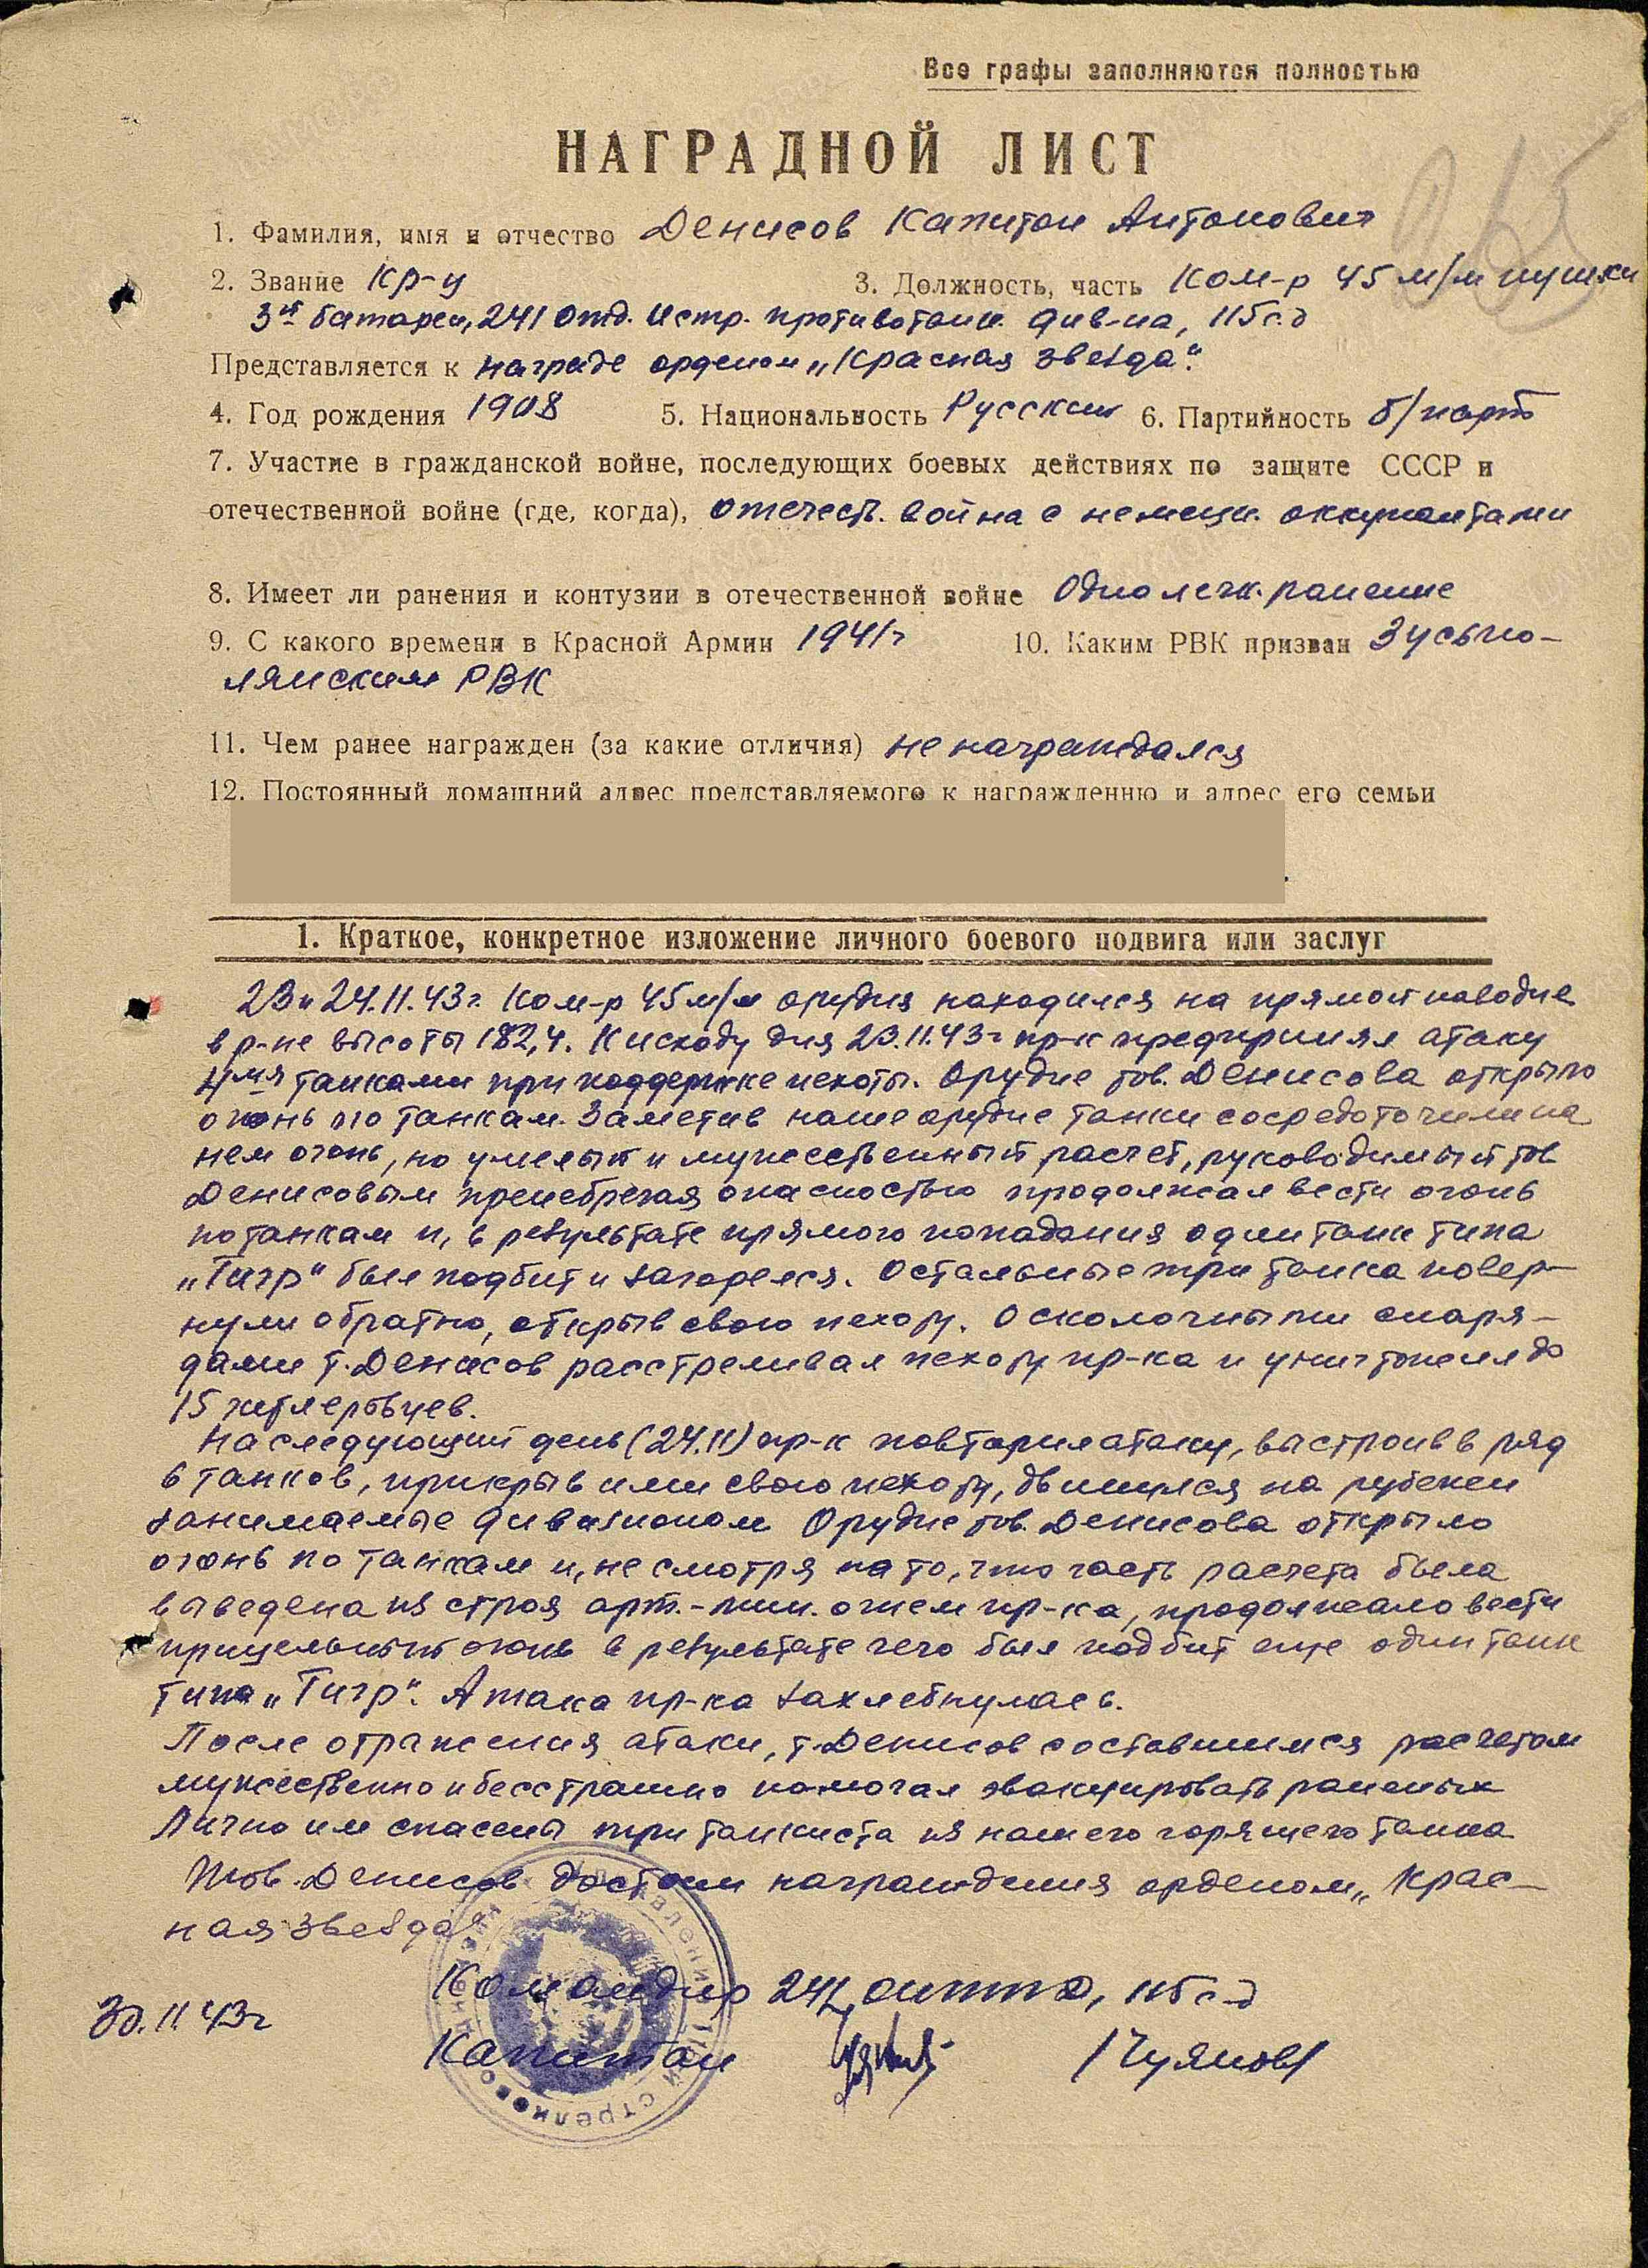 Все графы заполняются полностью
НАГРАДНОЙ ЛИСТ
1. Фамилия, имя и отчество Денисов Капитон Антонович
2. Звание Кр-ц 3. Должность, часть Ком-р 45 м/м пушки
3й батареи, 241 отд. истр. противотанк. див-на, 115 с.д
Представляется к награде орденом „Красная звезда".
4. Год рождения 1908 5. Национальность Русский 6. Партийность б/парт
7. Участие в гражданской войне, последующих боевых действиях по защите СССР и
отечественной войне (где, когда), отечеств. война с немецк. оккупантами
8. Имеет ли ранения и контузии в отечественной войне Одно легк. ранение
9. С какого времени в Красной Армии 1941г 10. Каким РВК призван
РВК
11. Чем ранее награжден (за какие отличия) не награждался
12. Постоянный домашний адрес представляемого к награждению и адрес его семьи
1. Краткое, конкретное изложение личного боевого подвига или заслуг
23 и 24.11.43г. Ком-р 45 м/м орудия находился на прямой наводке
в р-не высоты 182,4. К исходу дня 23.11.43г пр-к предпринял атаку
4мя танками при поддержке пехоты. Орудие тов. Денисова открыло
огонь по танкам. Заметив наше орудие танки сосредоточили на
нем огонь, но умелый и мужественный расчет, руководимый тов
Денисовым пренебрегая опасностью продолжал вести огонь
по танкам и, в результате прямого попадания один танк типа
„Тигр" был подбит и загорелся. Остальные три танка повер-
нули обратно, открыв свою пехоту. Осколочными снаря-
дами т. Денисов расстреливал пехоту пр-ка и уничтожил до
15 гитлеровцев.
На следующий день (24.11) пр-к повторил атаку, выстроив в ряд
6 танков, прикрыв ими свою пехоту, двинулся на рубежи
занимаемые дивизионом Орудие тов. Денисова открыло
огонь по танкам и, не смотря на то, что часть расчета была
выведена из строя арт.-мин. огнем пр-ка, продолжало вести
прицельный огонь в результате чего был подбит еще один танк
типа „Тигр". Атака пр-ка захлебнулась.
После отражения атаки, т. Денисов с оставшимся расчетом
мужественно и бесстрашно помогал эвакуировать раненых
Лично им спасены три танкиста из нашего горящего танка
Тов. Денисов достоин награждения орденом „Крас-
ная звезда"
Командир 241 оиптд, 115 с-д
30.11.43г
Капитан /Чуянов/